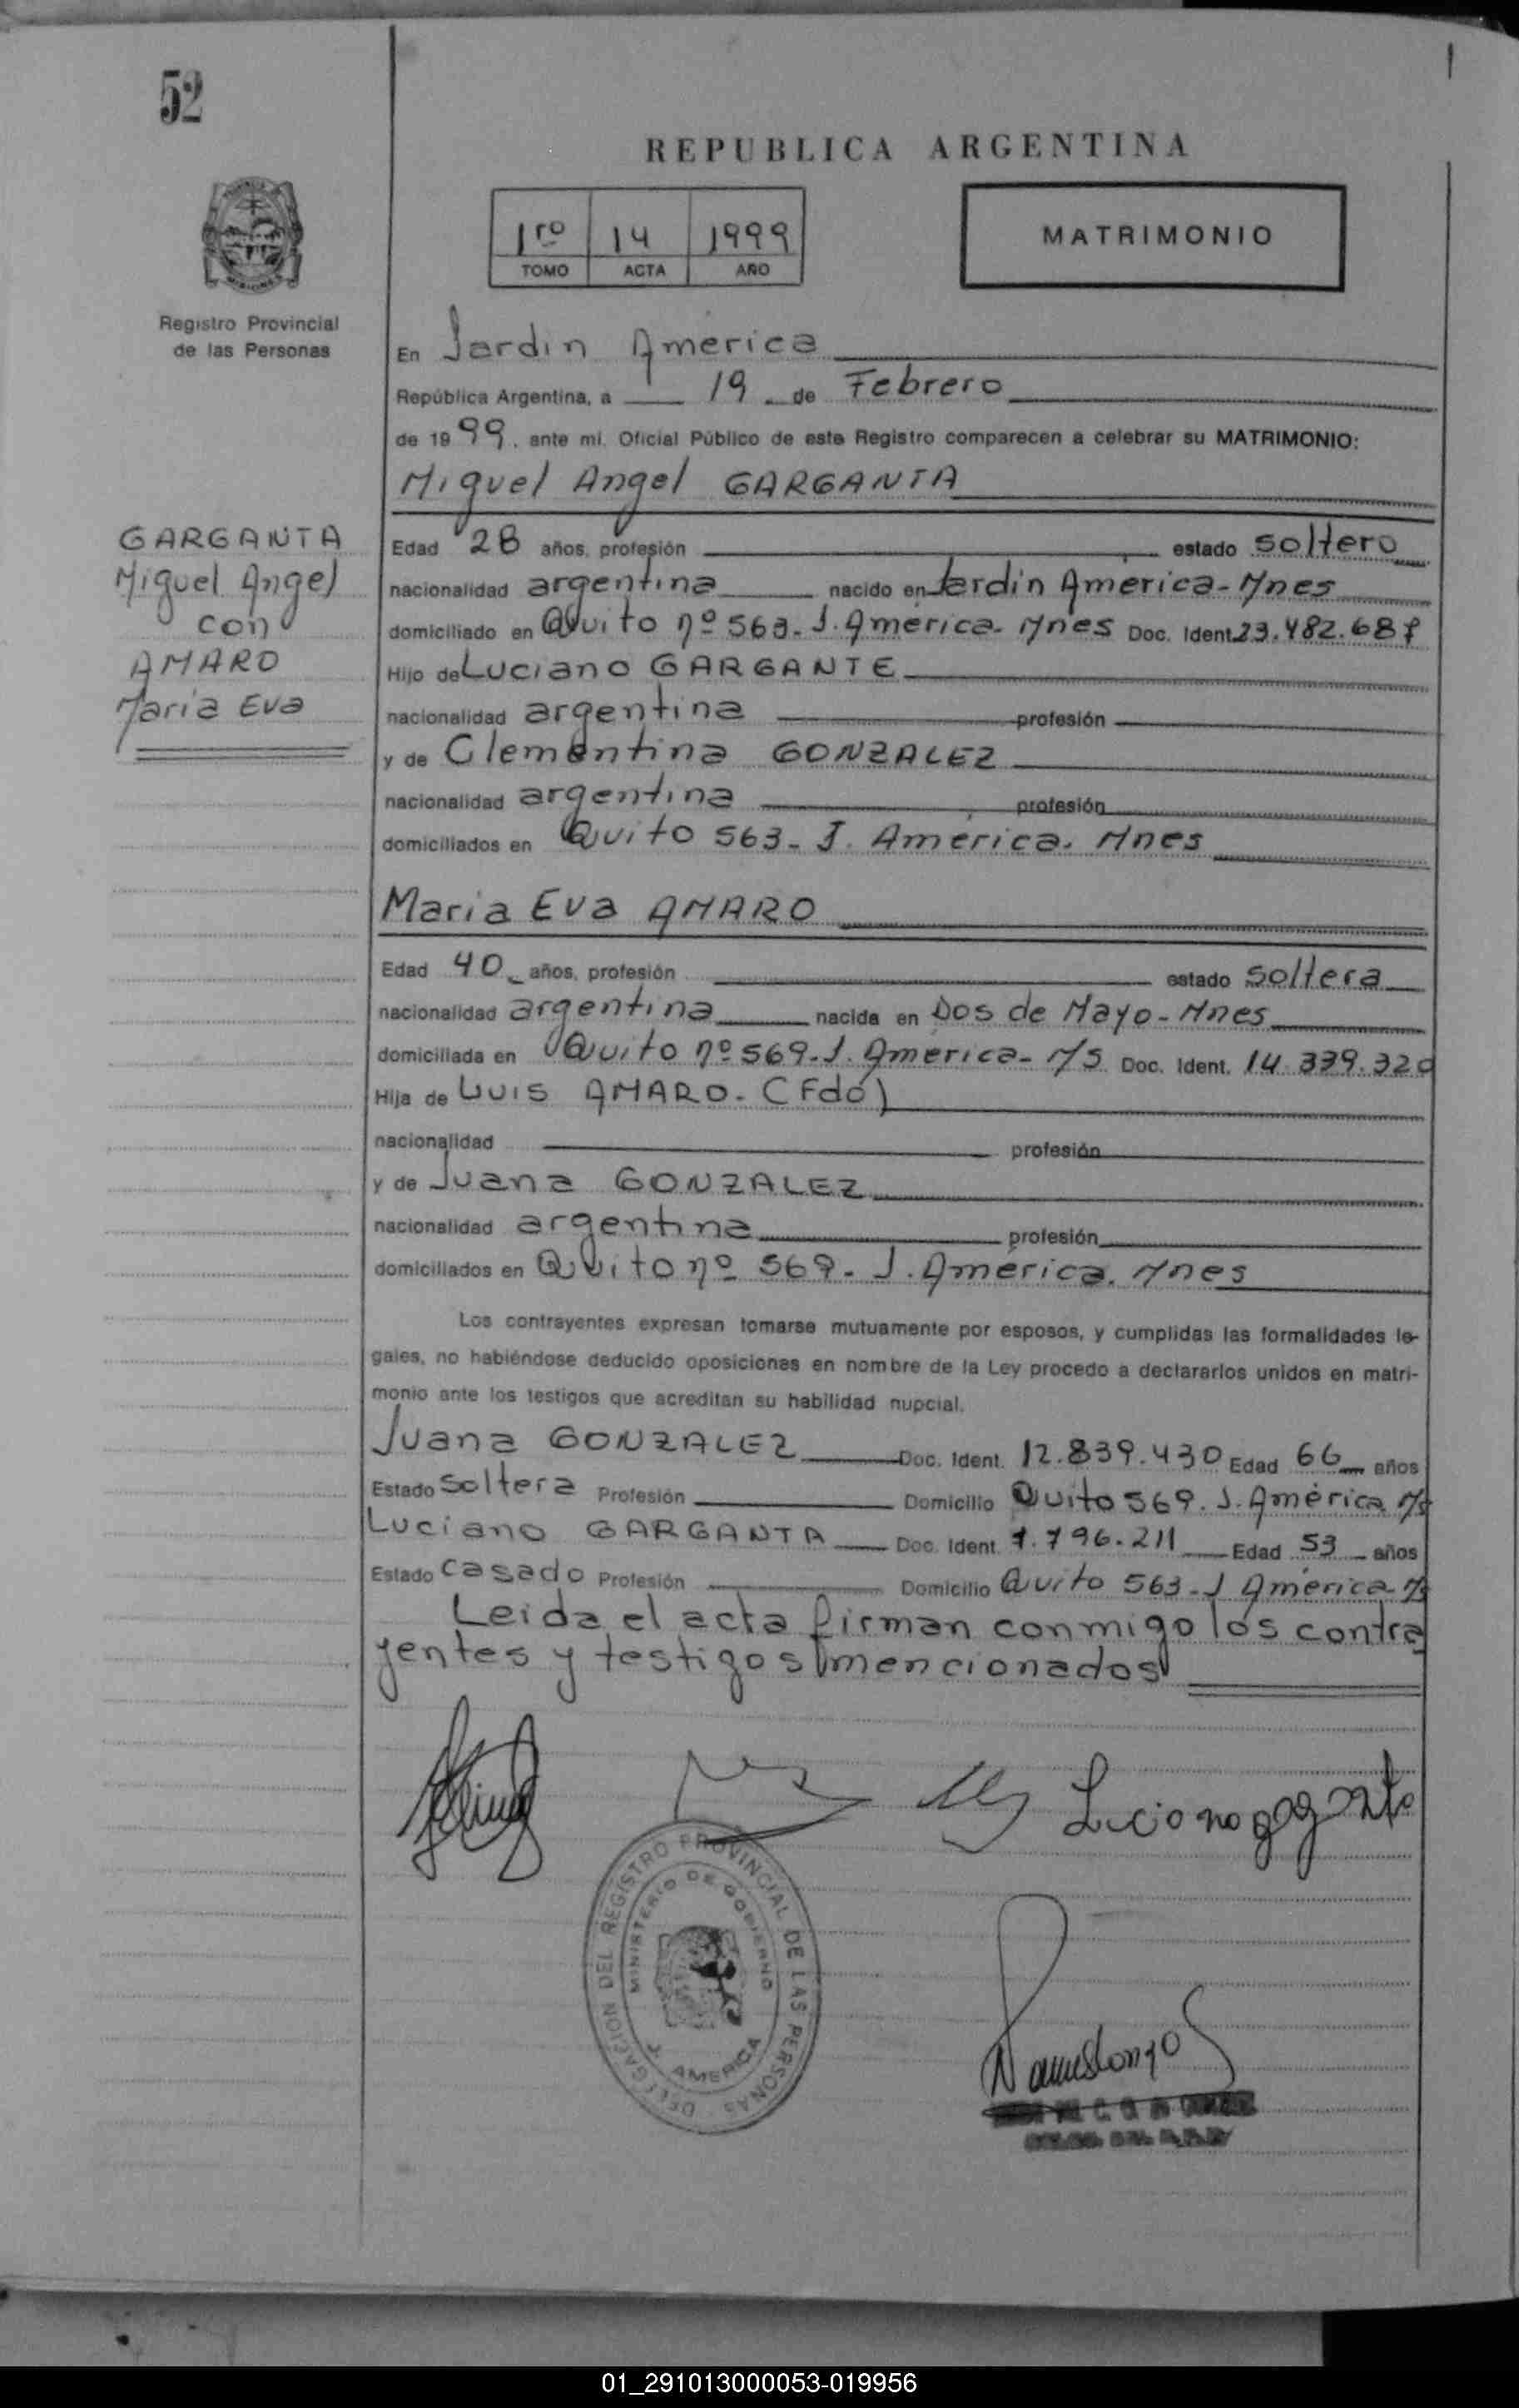 52
REPUBLICA ARGENTINA
1ro 14 1999
TOMO ACTA AÑO
MATRIMONIO
Registro Provincial
de las Personas
En Jardin America
República Argentina, a 19 de Febrero
de 1999. ante mi. Oficial Público de este Registro comparecen a celebrar su MATRIMONIO:
Miguel Angel GARGANTA
GARGANTA
Miguel Angel
con
AMARO
Maria Eva
Edad 28 años, profesión estado soltero
nacionalidad argentina nacido en Jardin América-Mnes
domiciliado en Quito nº 563. J. America. Mnes Doc. Ident. 23.482.687
Hijo de Luciano GARGANTE
nacionalidad argentina profesión
y de Clementina GONZALEZ
nacionalidad argentina profesión
domiciliados en Quito 563- J. América. Mnes
Maria Eva AMARO
Edad 40 años, profesión estado soltera
nacionalidad argentina nacida en Dos de Mayo-Mnes
domiciliada en Quito nº 569-J. América- M/s Doc. Ident. 14.339.320
Hija de Luis AMARO. (Fdo)
nacionalidad profesión
y de Juana GONZALEZ
nacionalidad argentina profesión
domiciliados en Quito nº 569- J. América. Mnes
Los contrayentes expresan tomarse mutuamente por esposos, y cumplidas las formalidades le-
gales, no habiéndose deducido oposiciones en nombre de la Ley procedo a declararlos unidos en matri-
monio ante los testigos que acreditan su habilidad nupcial.
Juana GONZALEZ Doc. Ident. 12.839.430 Edad 66 años
Estado Soltera Profesión Domicilio Quito 569. J. América M/s
Luciano GARGANTA Doc. Ident. 7.796.211 Edad 53 años
Estado Casado Profesión Domicilio Quito 563-J América M/s
Leida el acta firman conmigo los contra
yentes y testigos mencionados
DELEGACION DEL REGISTRO PROVINCIAL DE LAS PERSONAS
MINISTERIO DE GOBIERNO
J. AMERICA
01_291013000053-019956